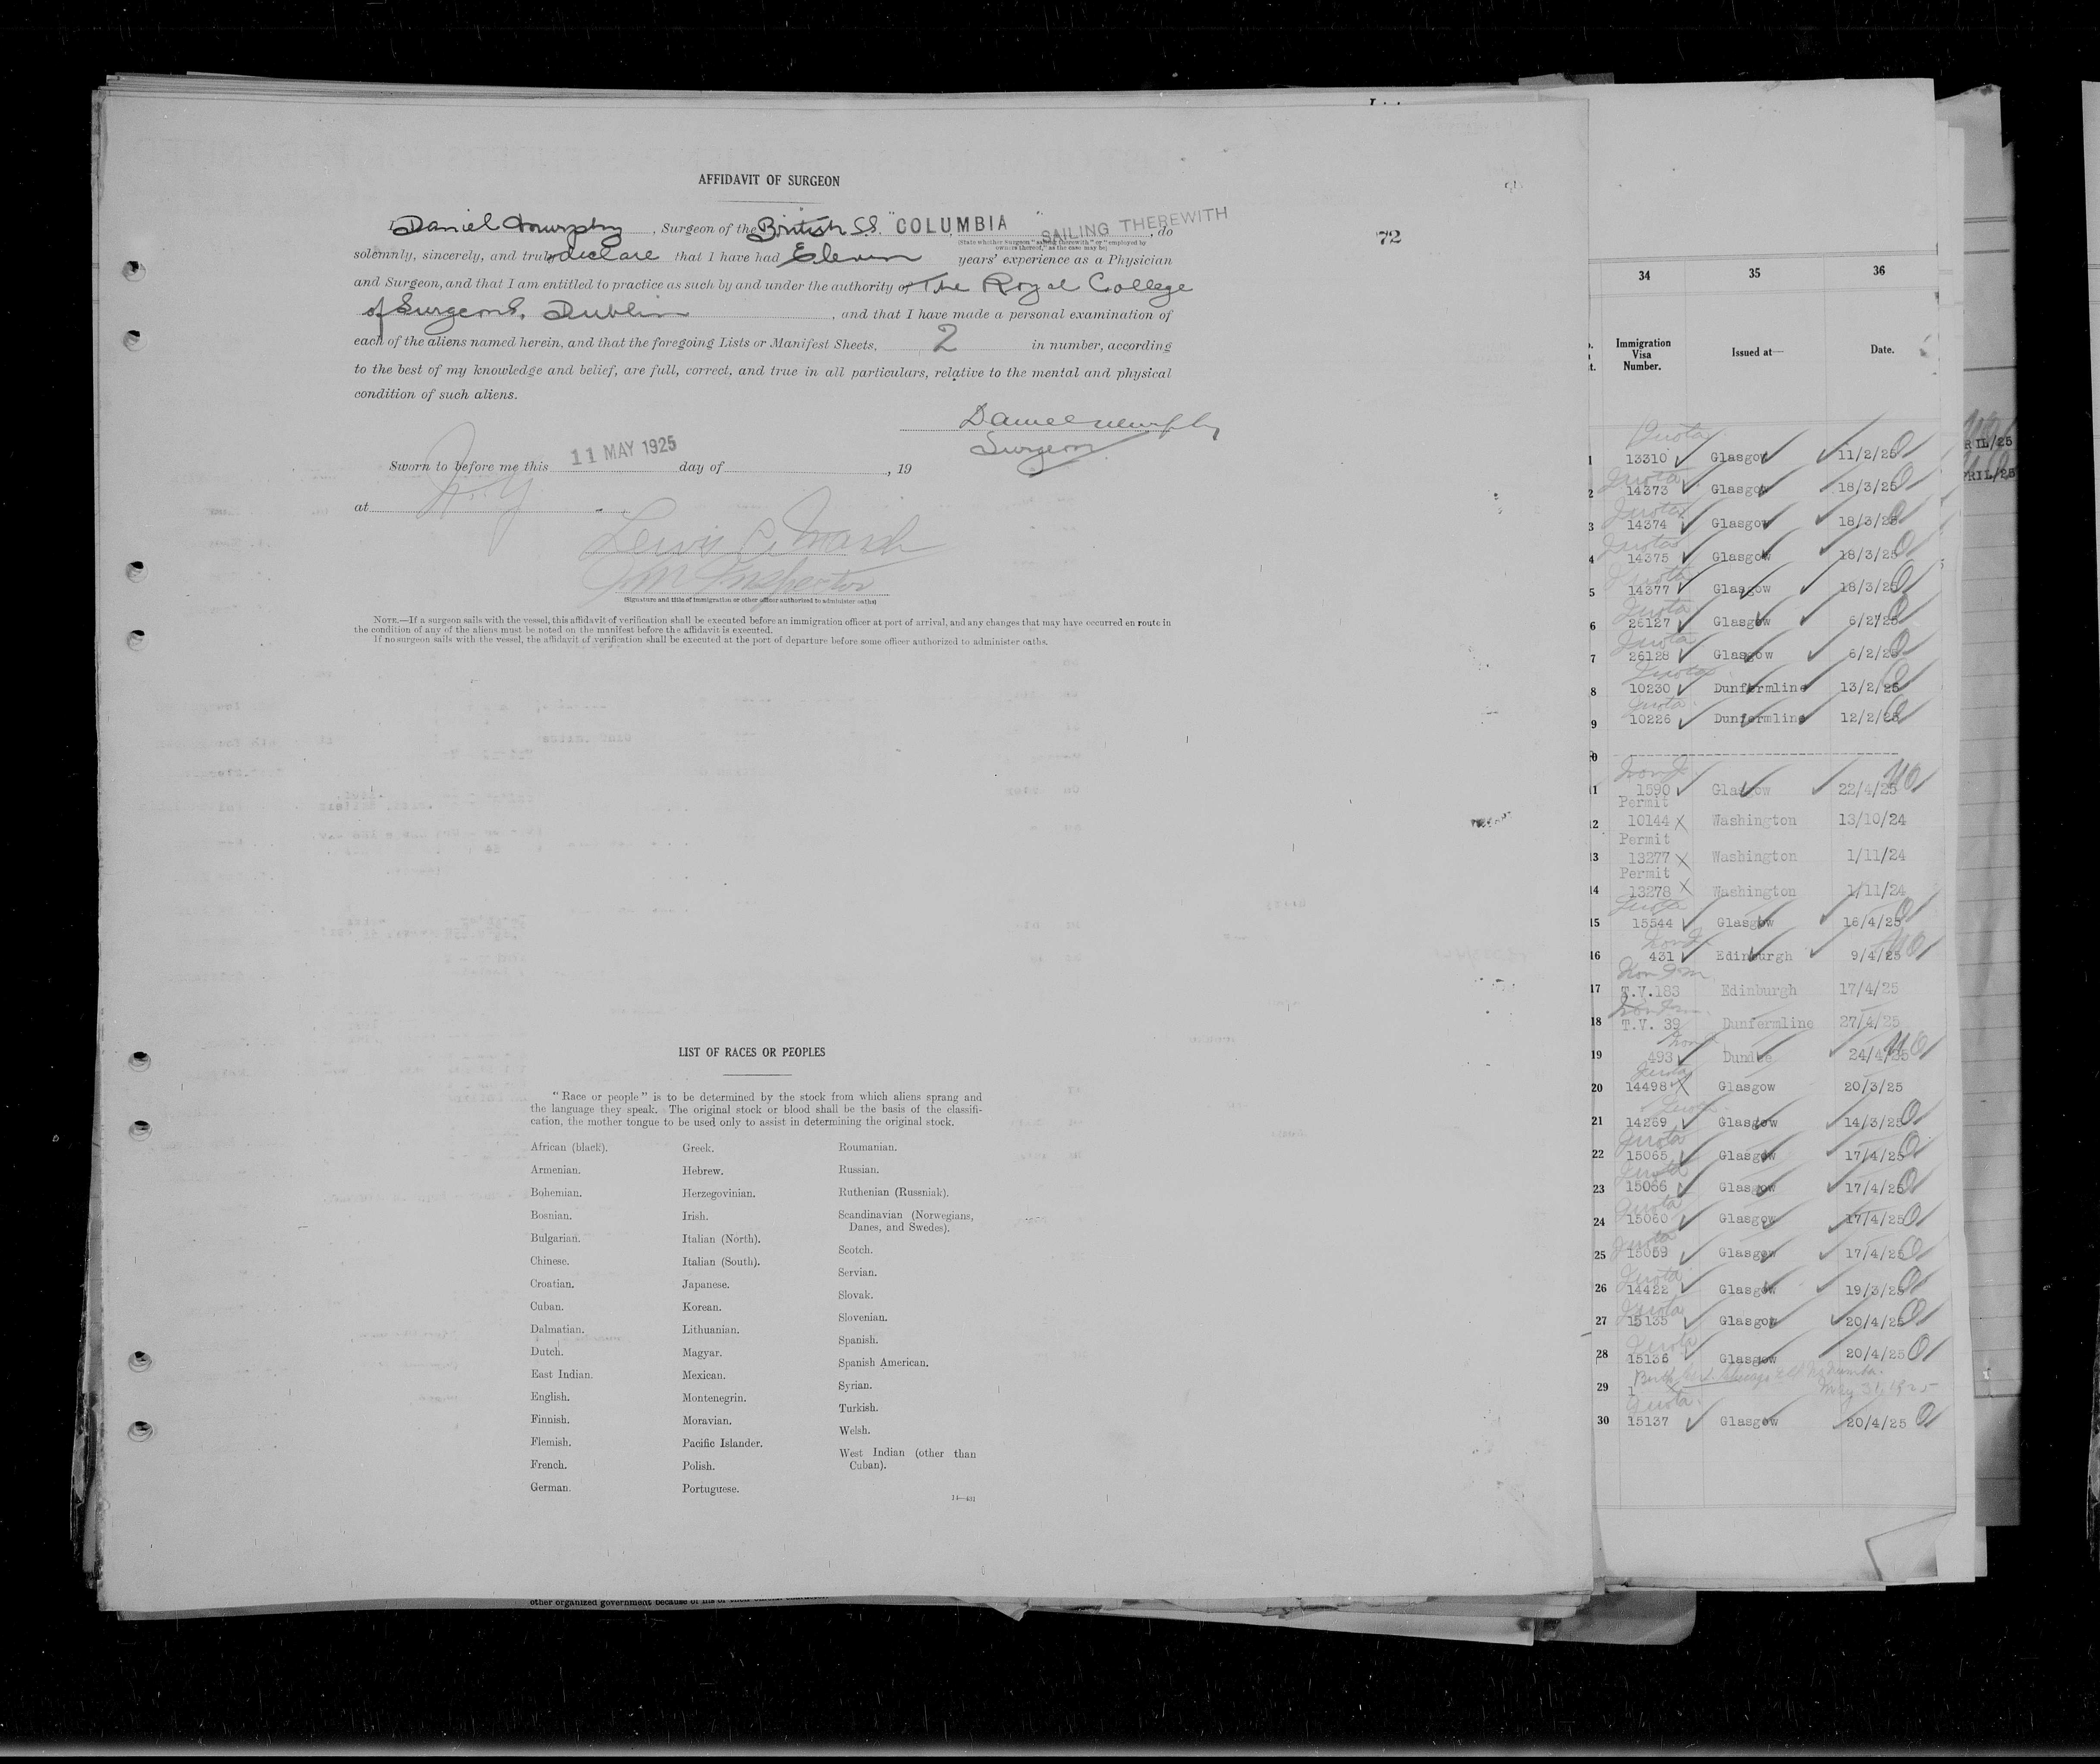 AFFIDAVIT OF SURGEON
I Daniel Murphy, Surgeon of the British S.S. "COLUMBIA" SAILING THEREWITH, do
(State whether Surgeon "sailing therewith" or "employed by
owners thereof," as the case may be)
72
solemnly, sincerely, and truly declare that I have had Eleven years' experience as a Physician
and Surgeon, and that I am entitled to practice as such by and under the authority of The Royal College
of Surgeons, Dublin, and that I have made a personal examination of
each of the aliens named herein, and that the foregoing Lists or Manifest Sheets, 2 in number, according
to the best of my knowledge and belief, are full, correct, and true in all particulars, relative to the mental and physical
condition of such aliens.
Daniel Murphy
Surgeon
Sworn to before me this 11 MAY 1925 day of , 19
at N.Y
Lewis C. Marsh
Im Inspector
(Signature and title of immigration or other officer authorized to administer oaths)
NOTE.—If a surgeon sails with the vessel, this affidavit of verification shall be executed before an immigration officer at port of arrival, and any changes that may have occurred en route in
the condition of any of the aliens must be noted on the manifest before the affidavit is executed.
If no surgeon sails with the vessel, the affidavit of verification shall be executed at the port of departure before some officer authorized to administer oaths.
LIST OF RACES OR PEOPLES
"Race or people" is to be determined by the stock from which aliens sprang and
the language they speak. The original stock or blood shall be the basis of the classifi-
cation, the mother tongue to be used only to assist in determining the original stock.
African (black).
Armenian.
Bohemian.
Bosnian.
Bulgarian.
Chinese.
Croatian.
Cuban.
Dalmatian.
Dutch.
East Indian.
English.
Finnish.
Flemish.
French.
German.
Greek.
Hebrew.
Herzegovinian.
Irish.
Italian (North).
Italian (South).
Japanese.
Korean.
Lithuanian.
Magyar.
Mexican.
Montenegrin.
Moravian.
Pacific Islander.
Polish.
Portuguese.
Roumanian.
Russian.
Ruthenian (Russniak).
Scandinavian (Norwegians,
Danes, and Swedes).
Scotch.
Servian.
Slovak.
Slovenian.
Spanish.
Spanish American.
Syrian.
Turkish.
Welsh.
West Indian (other than
Cuban).
other organized government because of his or their
34 35 36
Immigration
Visa
Number.
Issued at—
Date.
Quota
1 13310 Glasgow 11/2/25
Quota
2 14373 Glasgow 18/3/25
Quota
3 14374 Glasgow 18/3/25
Quota
4 14375 Glasgow 18/3/25
Quota
5 14377 Glasgow 18/3/25
Quota
6 26127 Glasgow 6/2/25
Quota
7 26128 Glasgow 6/2/25
Quota
8 10230 Dunfermline 13/2/25
Quota
9 10226 Dunfermline 12/2/25
0
Non Q
11 1590 Glasgow 22/4/25 NQ
Permit
12 10144 Washington 13/10/24
Permit
13 13277 Washington 1/11/24
Permit
14 13278 Washington 1/11/24
Quota
15 15544 Glasgow 16/4/25
Non Q
16 431 Edinburgh 9/4/25 NQ
Non Im
17 T.V.183 Edinburgh 17/4/25
Non Im
18 T.V. 39 Dunfermline 27/4/25
Non Q
19 493 Dundee 24/4/25 NQ
Quota
20 14498 Glasgow 20/3/25
Quota
21 14269 Glasgow 14/3/25
Quota
22 15065 Glasgow 17/4/25
Quota
23 15066 Glasgow 17/4/25
Quota
24 15060 Glasgow 17/4/25
Quota
25 15059 Glasgow 17/4/25
Quota
26 14422 Glasgow 19/3/25
Quota
27 15135 Glasgow 20/4/25
Quota
28 15136 Glasgow 20/4/25
Birth
29 May 31, 1925
Quota
30 15137 Glasgow 20/4/25
RIL/25
PRIL/25